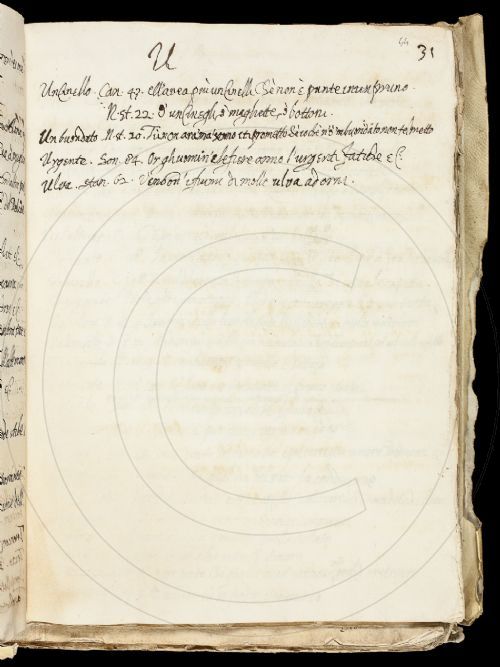 44
31
U
Uncinello. Can. 47. ell'avea più uncinella Che non è punte in un pruno.
N. st. 22. d'uncinegli, o maghette, o bottoni.
Un buondato N. st. 20.
Urgente. Son. 84. Or gli uomini e le fiere anno l'urgenti fatiche &c.
Ulva. stan. 62. Vi son i fiumi di molle ulva adorni.